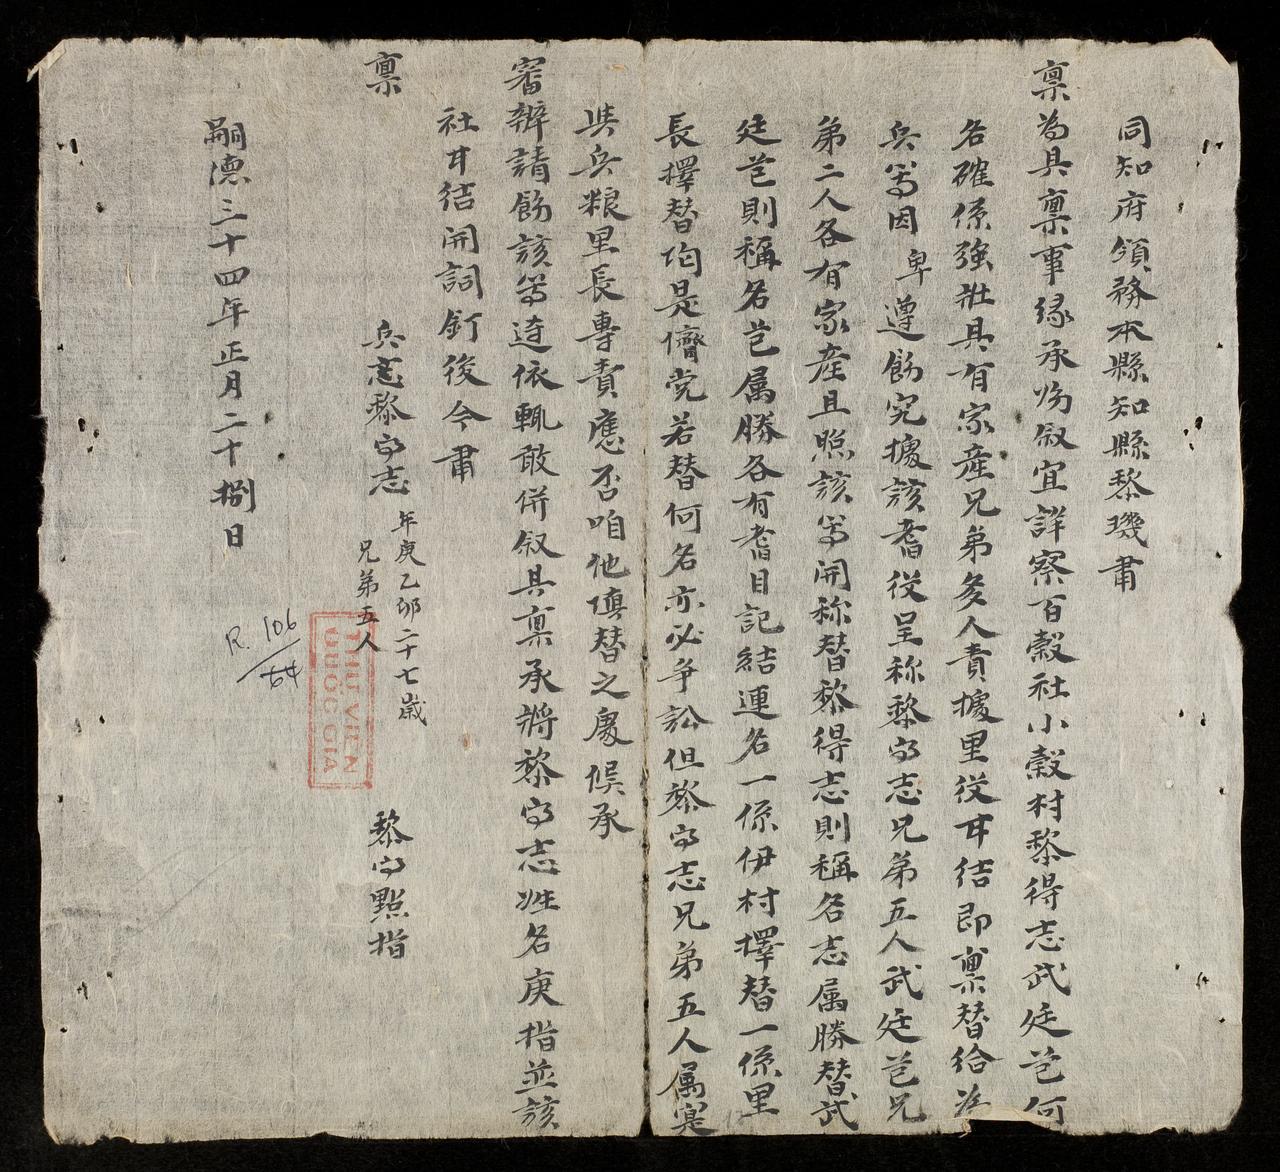 同知府領務本縣知縣黎璣肅
稟為具稟事緣承飭叙宜詳察百穀社小穀村黎得志武廷芭何
名確係強壯具有家産兄弟多人責據里役甘結即稟替給為
兵等因卑遵飭究據該耆役呈称黎得志兄弟五人武廷芭兄
弟二人各有家産且照該等開称替黎得志則稱名志属勝替武
廷芭則稱名芭属勝各有耆目記結連名一係伊村擇替一係里
長擇替均是儕党若替何名亦必爭訟但黎得志兄弟五人属寔
其兵粮里長專責應否咱他填替之處候承
審辦請飭該等遵依輒敢併叙具稟承將黎得志姓名庚指並該
社甘結開詞釘後今肅
稟
兵志黎得志 年庚乙卯二十七歲
兄弟五人
黎得點指
嗣德三十四年正月二十捌日
R. 106
64
THƯ VIỆN
QUỐC GIA